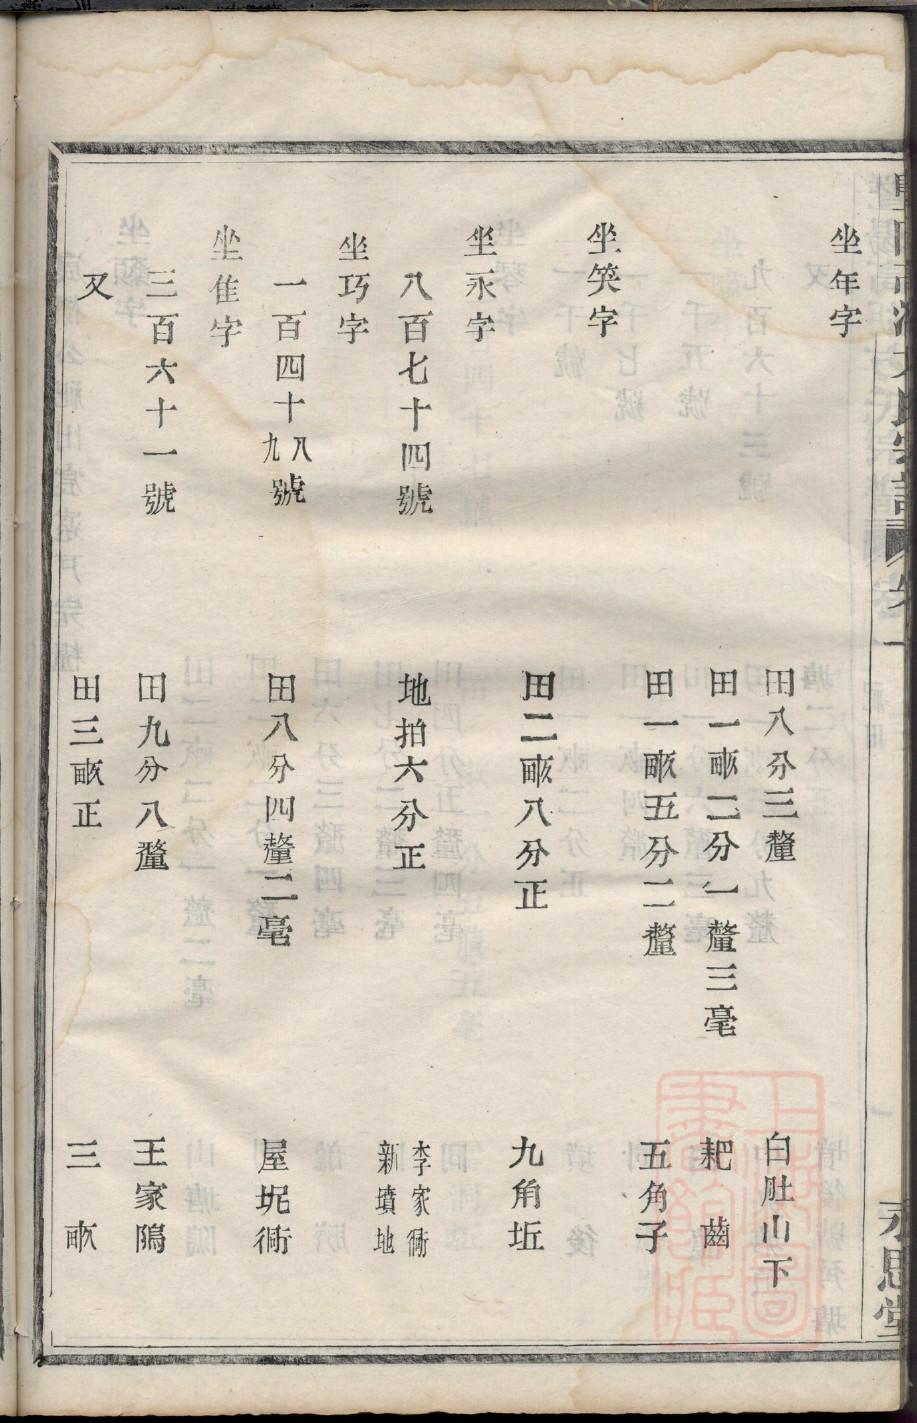 坐年字
田八分三釐 白肚山下
田一畝二分一釐三毫 耙齒
田一畝五分二釐 五角子
坐笑字
田二畝八分正 九角坵
坐永字
八百七十四號 地拍六分正 李家衕新墳地
坐巧字
一百四十八九號 田八分四釐二毫 屋坭衕
坐隹字
三百六十一號 田九分八釐 王家隖
又 田三畝正 三畝
永思堂